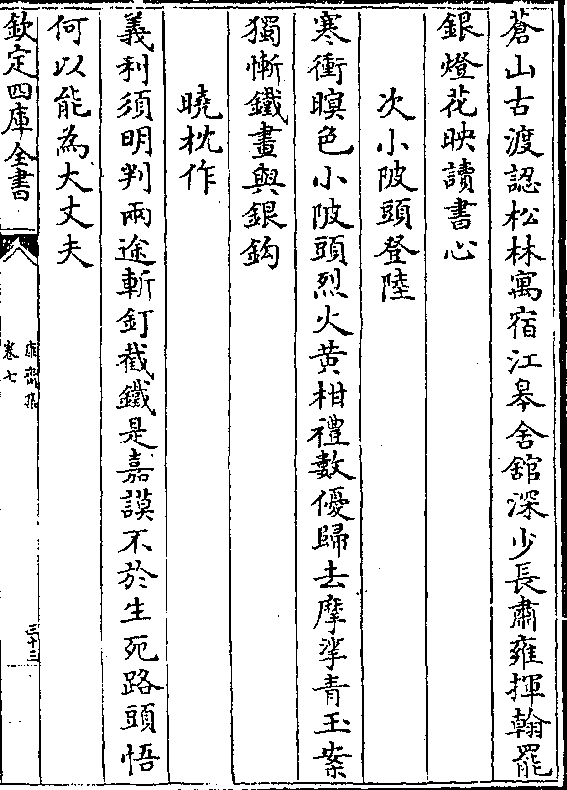 蒼山古渡認松林寓宿江皋舍舘深少長肅雍揮翰罷
銀燈花映讀書心
次小陂頭登陸
寒衝暝色小陂頭烈火黄柑禮數優歸去摩挲青玉案
獨慚鐵畫與銀鈎
曉枕作
義利須明判兩途斬釘截鐵是嘉謨不於生死路頭悟
何以能為大丈夫
欽定四庫全書
卷七
三十三